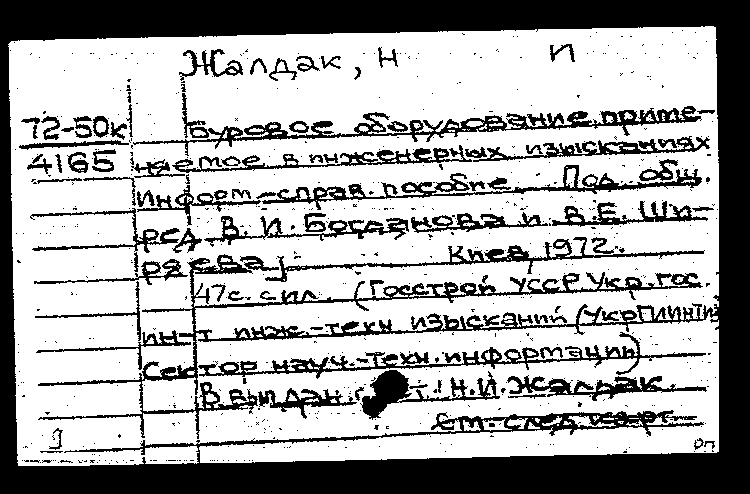 Жалдак, Н И
72-50к Буровое оборудование, приме-
4165 няемое в инженерных изысканиях
Информ.-справ. пособие. Под общ.
ред. В. И. Богданова и В.Е. Ши-
ряева] Киев, 1972.
47с. с ил. (Госстрой УССР. Укр. гос.
ин-т инж.-техн изысканий (УкрГИИНТИЗ)
Сектор науч.-техн. информации)
В вып. дан. Н.И. Жалдак.
См. след карт
рп